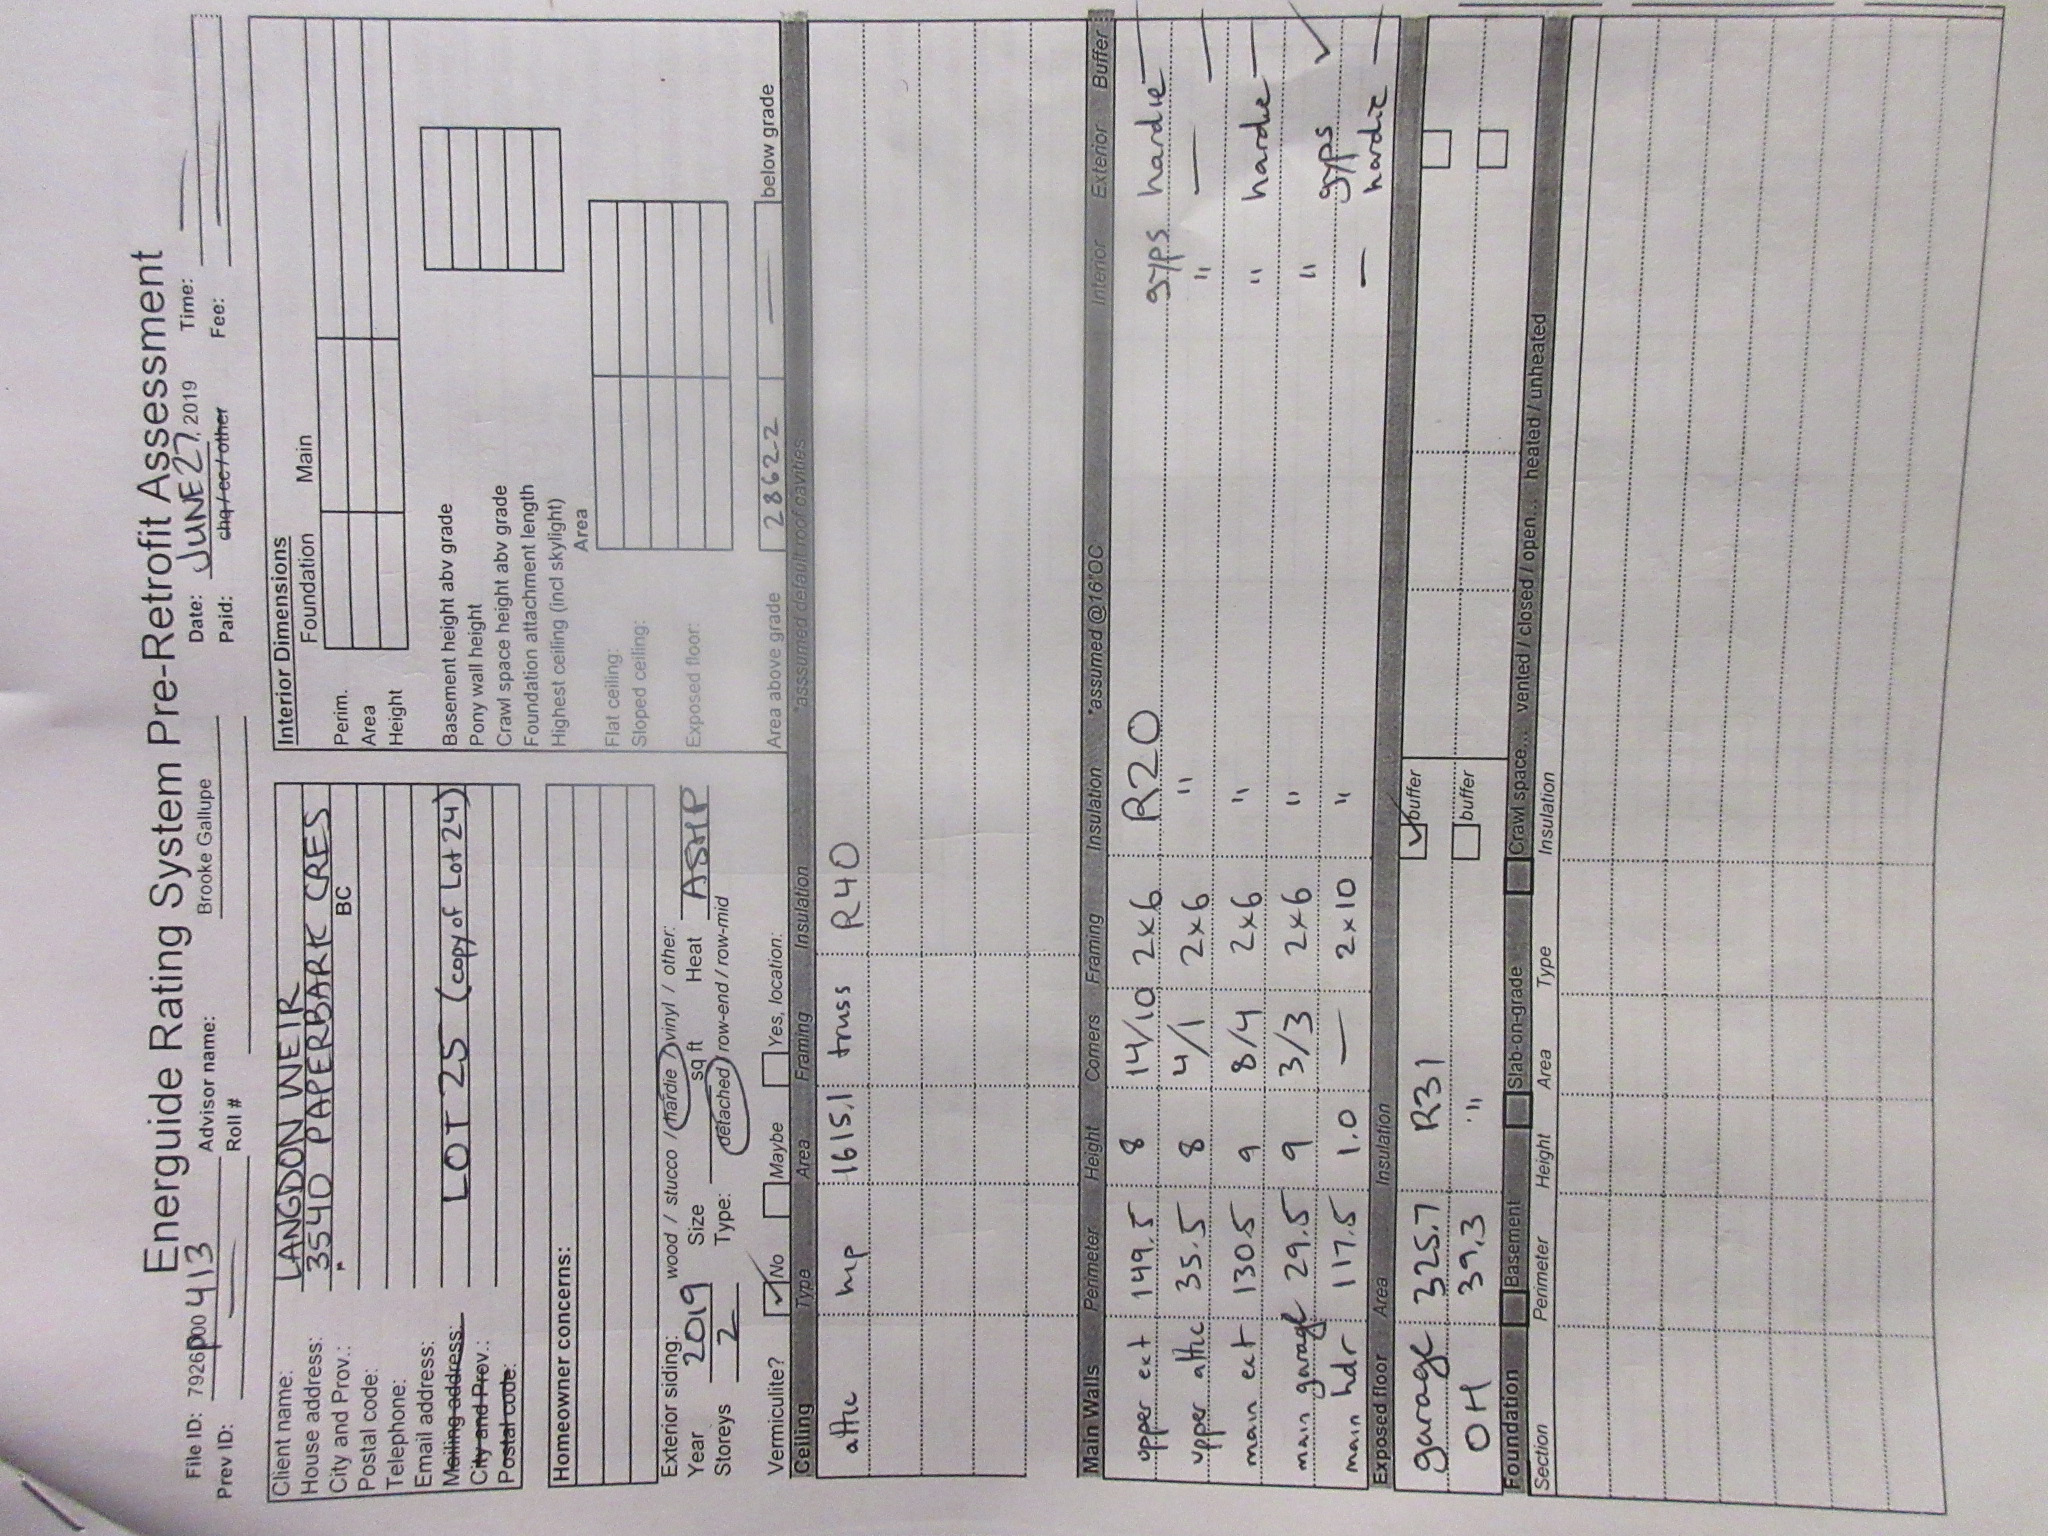 Energuide Rating System Pre-Retrofit Assessment
File ID: 7926P00413 Advisor name: Brooke Gallupe Date: JUNE 27, 2019 Time: —
Prev ID: — Roll # Paid: chq / cc / other Fee: —
Client name: LANGDON WEIR
House address: 3540 PAPERBARK CRES
City and Prov.: BC
Postal code:
Telephone:
Email address:
Mailing address: LOT 25 (copy of Lot 24)
City and Prov.:
Postal code:
Homeowner concerns:
Exterior siding: wood / stucco / hardie / vinyl / other:
Year 2019 Size sq ft Heat ASHP
Storeys 2 Type: detached / row-end / row-mid
Vermiculite? ✓ No Maybe Yes, location:
Interior Dimensions
Foundation Main
Perim.
Area
Height
Basement height abv grade
Pony wall height
Crawl space height abv grade
Foundation attachment length
Highest ceiling (incl skylight)
Area
Flat ceiling:
Sloped ceiling:
Exposed floor:
Area above grade 2862.2 — below grade
Ceiling Type Area Framing Insulation *asssumed default roof cavities
attic hip 1615.1 truss R40
Main Walls Perimeter Height Corners Framing Insulation *assumed @16"OC Interior Exterior Buffer
upper ext 149.5 8 14/10 2x6 R20 gyps hardie —
upper attic 35.5 8 4/1 2x6 " " — —
main ext 130.5 9 8/4 2x6 " " hardie —
main garage 29.5 9 3/3 2x6 " " gyps ✓
main hdr 117.5 1.0 — 2x10 " — hardie —
Exposed floor Area Insulation
garage 325.7 R31 ✓ buffer
OH 39.3 " buffer
Foundation Basement Slab-on-grade Crawl space... vented / closed / open... heated / unheated
Section Perimeter Height Area Type Insulation